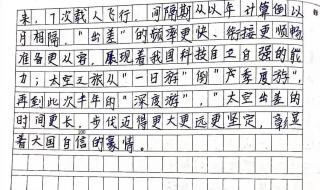 来，7次载人飞行，间隔期从以年计算倒以
月相隔，“出差”的频率更快、衔接更顺畅
准备更从容，展现着我国科技自卫自强的能
力；太空之旅从“一日游”倒“产季度游”，
再到此次半年的“深度游”，“太空出差的
时间更长，步伐迈得更大更远更坚定，彰显
着大国自信的豪情。